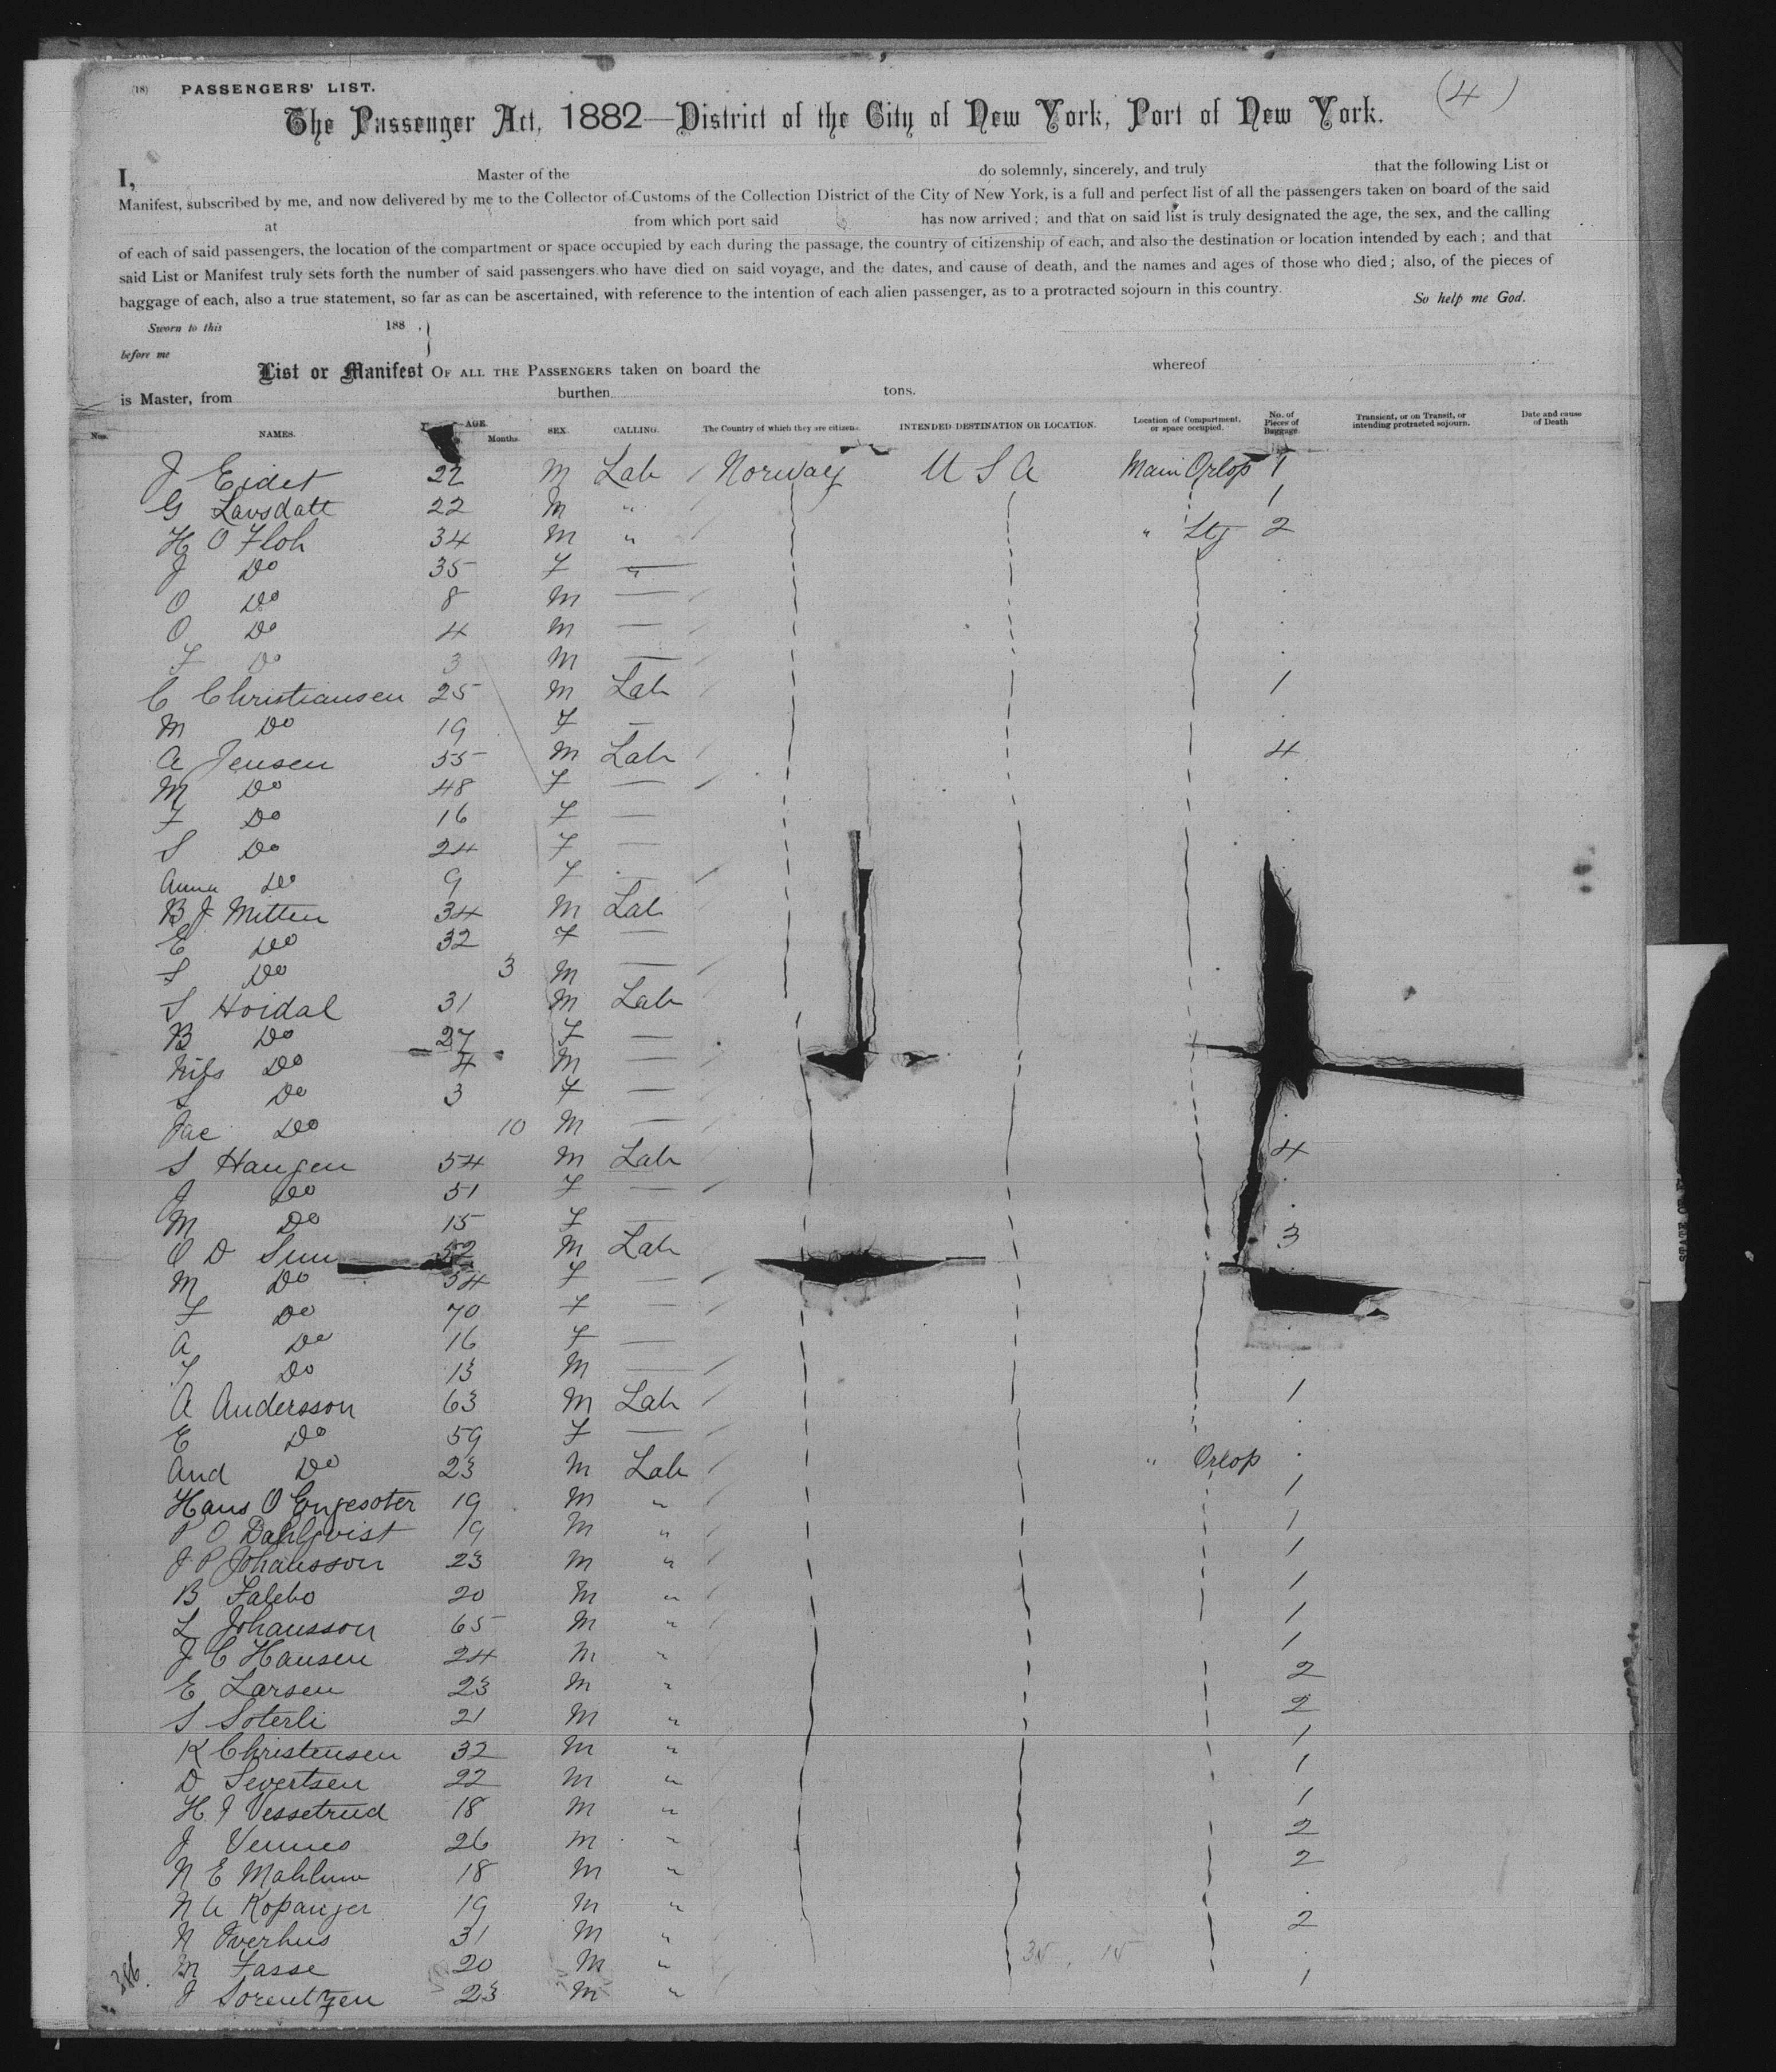 (18) PASSENGERS' LIST. (4)
The Passenger Act, 1882—District of the City of New York, Port of New York.
I, Master of the do solemnly, sincerely, and truly that the following List or
Manifest, subscribed by me, and now delivered by me to the Collector of Customs of the Collection District of the City of New York, is a full and perfect list of all the passengers taken on board of the said
at from which port said has now arrived; and that on said list is truly designated the age, the sex, and the calling
of each of said passengers, the location of the compartment or space occupied by each during the passage, the country of citizenship of each, and also the destination or location intended by each; and that
said List or Manifest truly sets forth the number of said passengers who have died on said voyage, and the dates, and cause of death, and the names and ages of those who died; also, of the pieces of
baggage of each, also a true statement, so far as can be ascertained, with reference to the intention of each alien passenger, as to a protracted sojourn in this country. So help me God.
Sworn to this 188 .
before me
List or Manifest OF ALL THE PASSENGERS taken on board the whereof
is Master, from burthen tons.
Nos. NAMES. AGE. Months. SEX. CALLING. The Country of which they are citizens. INTENDED DESTINATION OR LOCATION. Location of Compartment, or space occupied. No. of Pieces of Baggage. Transient, or on Transit, or intending protracted sojourn. Date and cause of Death
J Eidet 22 M Lab Norway U S A Main Orlop 1
G Lavsdatt 22 M " 1
H O Floh 34 M " " Stg 2
J Do 35 F "
O Do 8 M —
O Do 4 M —
F Do 3 M —
C Christiansen 25 M Lab 1
M Do 19 F —
A Jensen 55 M Lab 4
M Do 48 F —
F Do 16 F —
S Do 24 F —
Anna Do 9 F —
B J Mitten 34 M Lab
E Do 32 F —
S Do 3 M —
S Hoidal 31 M Lab
B Do 27 F —
Nils Do 4 M —
S Do 3 F —
Jac Do 10 M —
S Haugen 54 M Lab 4
J Do 51 F —
M Do 15 F —
O D Sun 52 M Lab 3
M Do 54 F —
F Do 70 F —
A Do 16 F —
T Do 13 M —
A Andersson 63 M Lab 1
E Do 59 F —
And Do 23 M Lab " Orlop
Hans O Engesoter 19 M " 1
P O Dahlqvist 19 M " 1
J P Johansson 23 M " 1
B Falebo 20 M " 1
L Johansson 65 M " 1
J C Hansen 24 M " 1
E Larsen 23 M " 2
S Soterli 21 M " 2
K Christensen 32 M " 1
D Severtsen 22 M " 1
H J Vessetrud 18 M " 1
J Vennes 26 M " 2
N E Mahlum 18 M " 2
N A Kopanger 19 M "
N Tverhus 31 M " 2
M Fasse 20 M "
J Sorentzen 23 M " 1